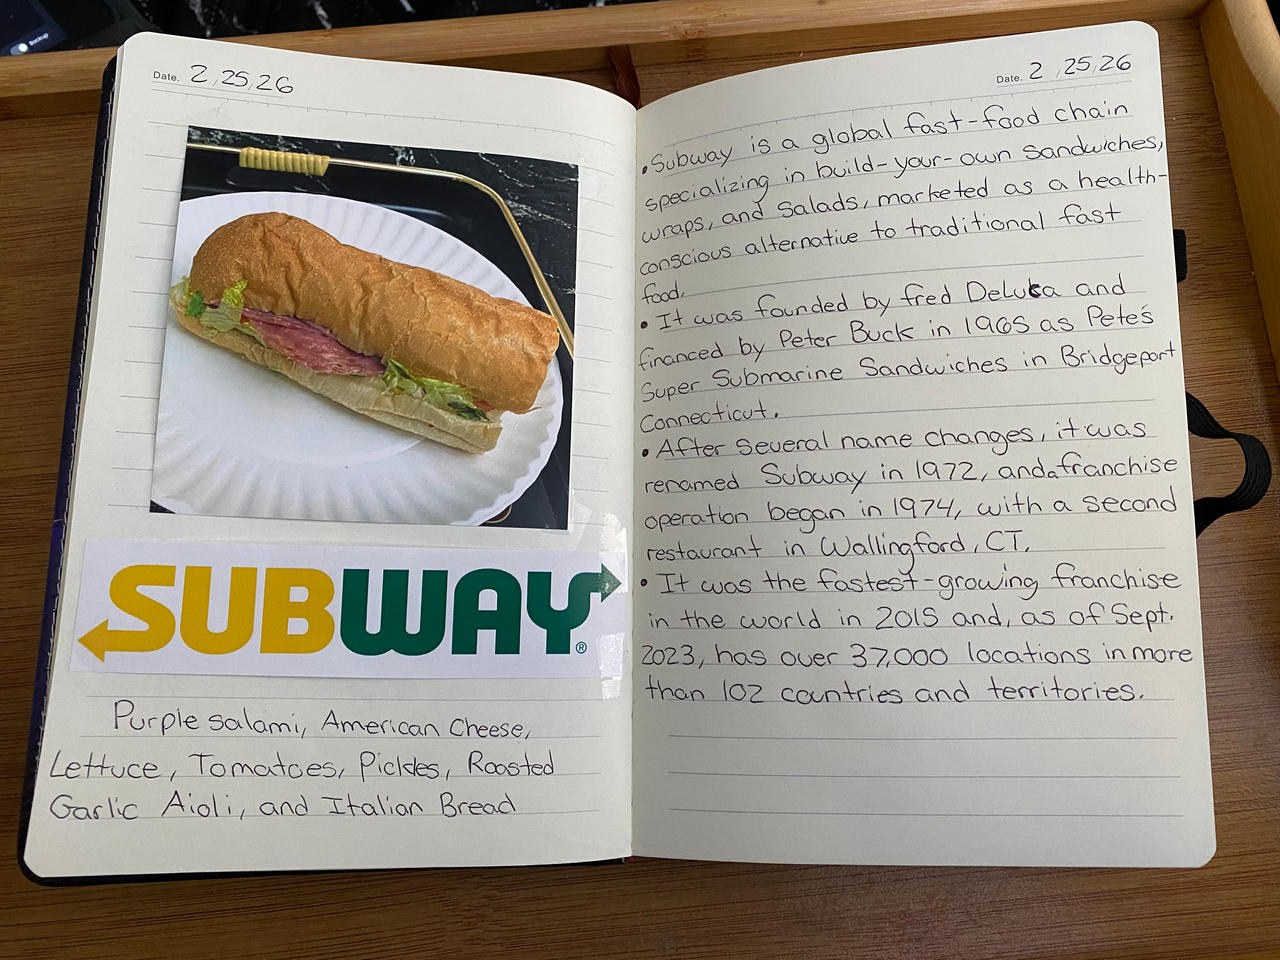 Backup
Date. 2,25,26
SUBWAY®
Purple salami, American Cheese,
Lettuce, Tomatoes, Pickles, Roasted
Garlic Aioli, and Italian Bread
Date. 2,25,26
•Subway is a global fast-food chain
specializing in build-your-own sandwiches,
wraps, and salads, marketed as a health-
conscious alternative to traditional fast
food.
• It was founded by fred Deluca and
financed by Peter Buck in 1965 as Pete's
Super Submarine Sandwiches in Bridgeport
Connecticut.
• After several name changes, it was
renamed Subway in 1972, and a franchise
operation began in 1974, with a second
restaurant in Wallingford, CT.
• It was the fastest-growing franchise
in the world in 2015 and, as of Sept.
2023, has over 37,000 locations in more
than 102 countries and territories.